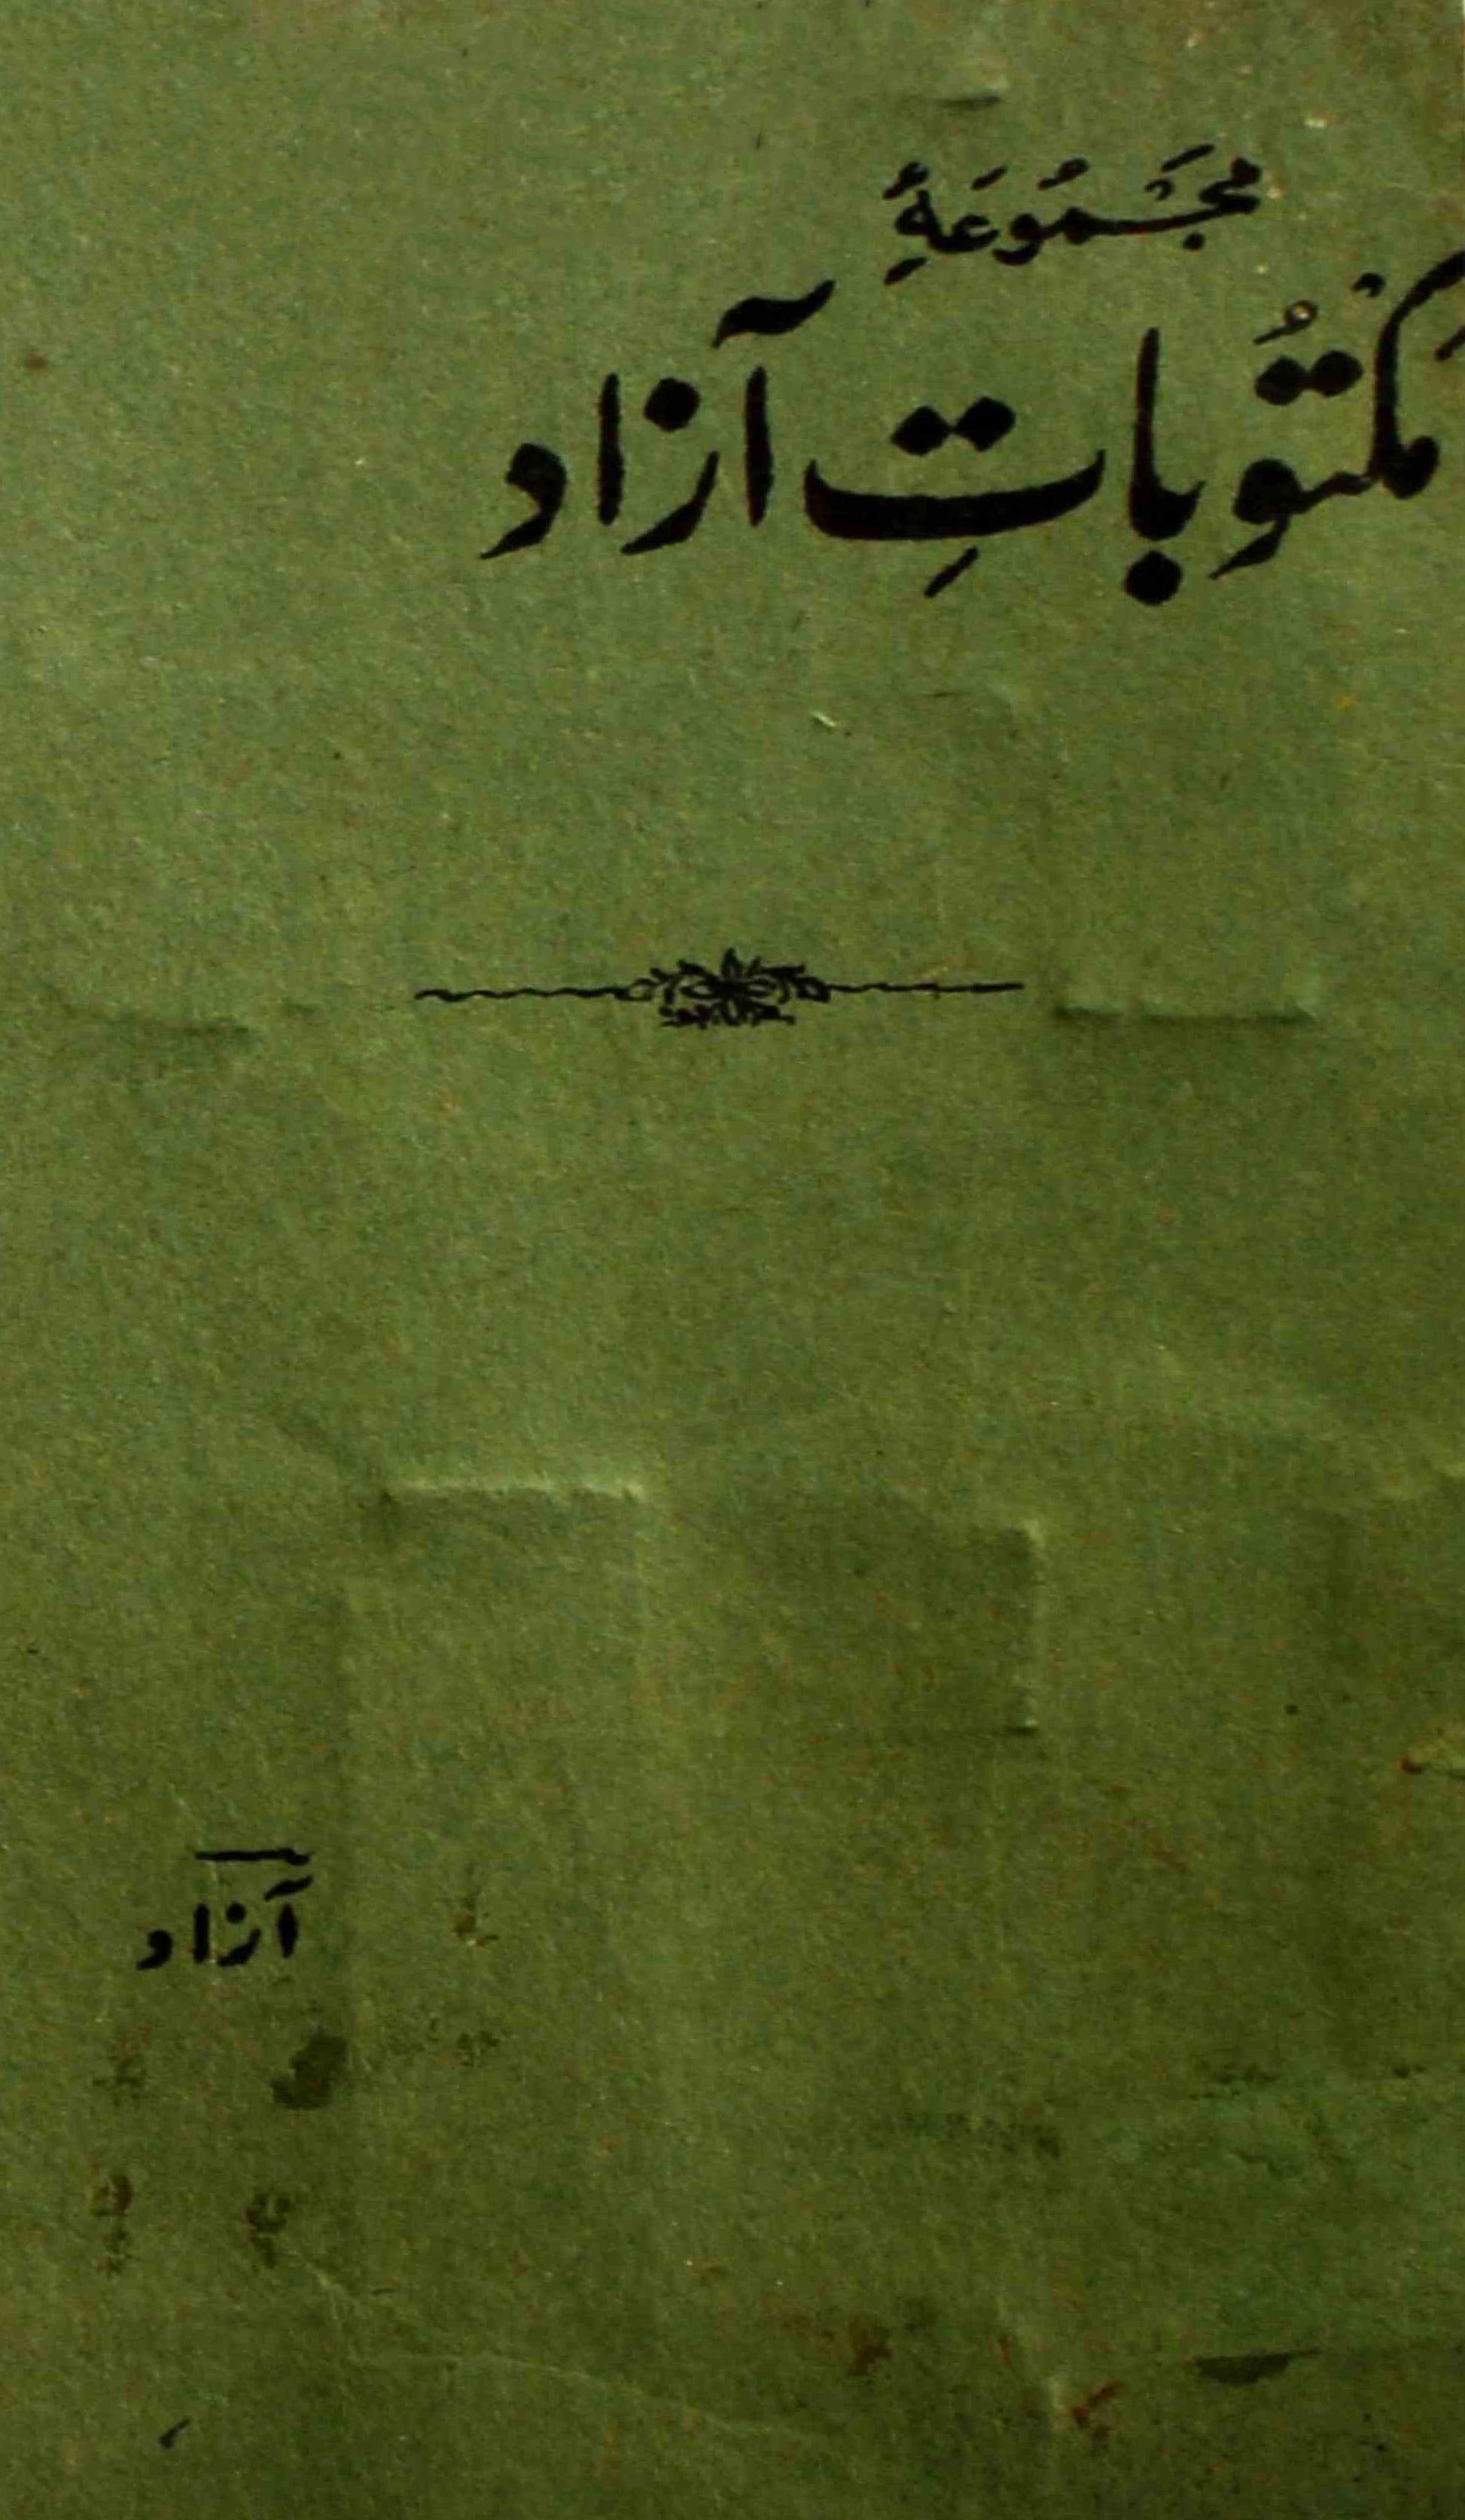 مَجْمُوعَۂِ
مکتُوباتِ آزاد
آزاد